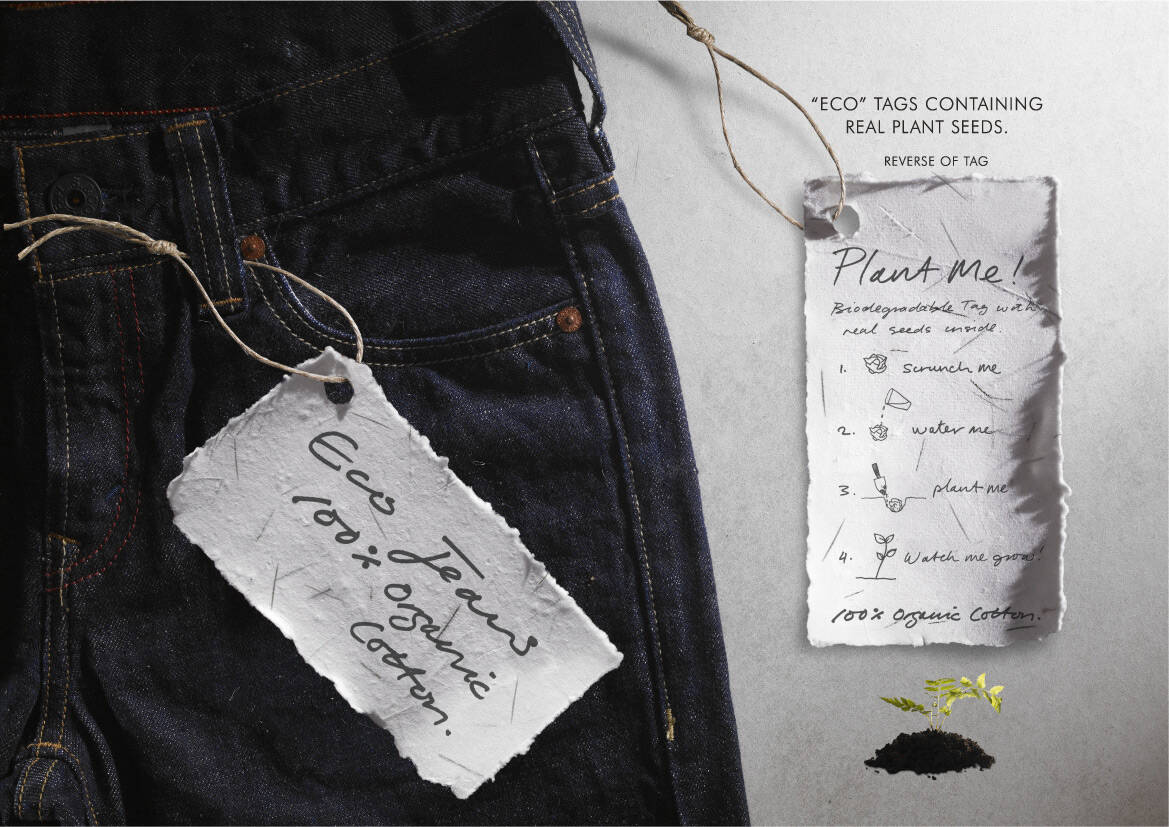 Eco Jeans
100% Organic
Cotton.
“ECO” TAGS CONTAINING
REAL PLANT SEEDS.
REVERSE OF TAG
Plant Me!
Biodegradable Tag with
real seeds inside.
1. scrunch me
2. water me
3. plant me
4. Watch me grow!
100% Organic Cotton.